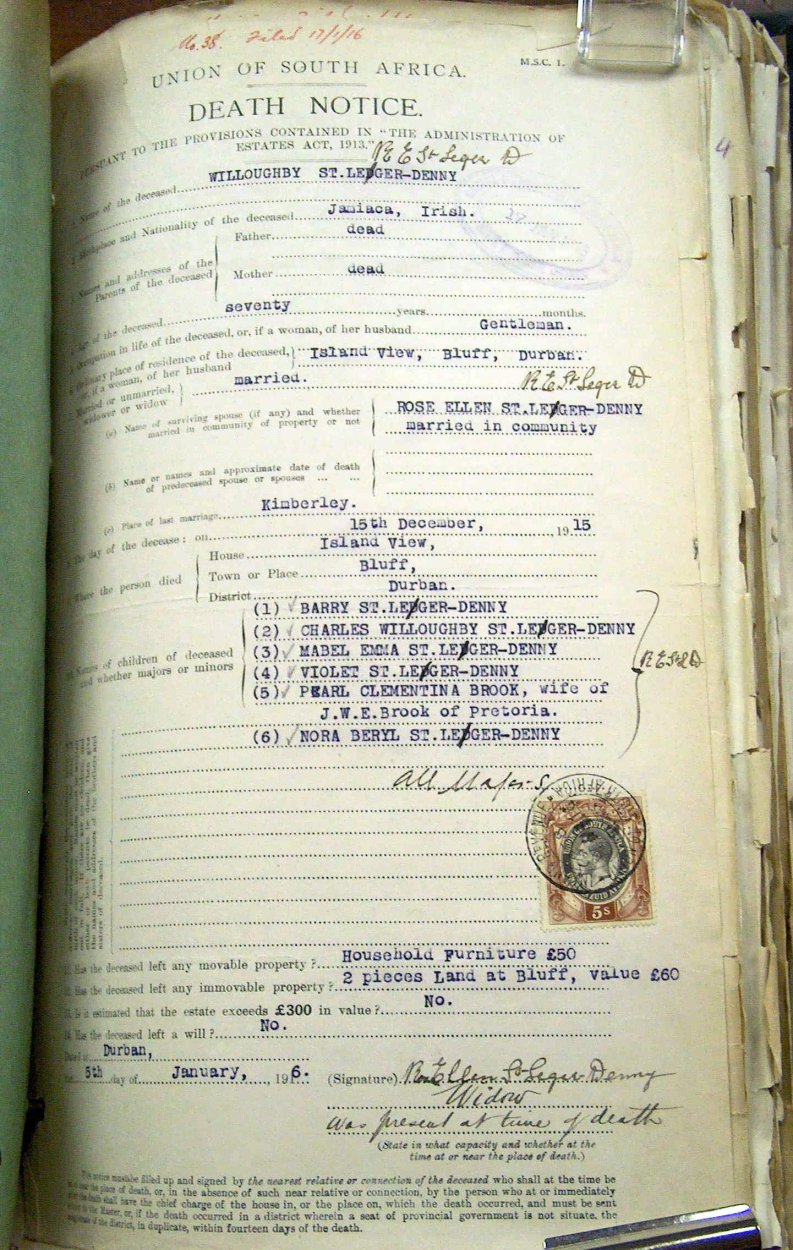 No. 38. Filed 17/1/16
M.S.C. 1.
UNION OF SOUTH AFRICA.
DEATH NOTICE.
PURSUANT TO THE PROVISIONS CONTAINED IN "THE ADMINISTRATION OF
ESTATES ACT, 1913."
R E St Leger D
4
1. Name of the deceased WILLOUGHBY ST.LEDGER-DENNY
2. Birthplace and Nationality of the deceased Jamiaca, Irish.
3. Names and addresses of the
Parents of the deceased
Father dead
Mother dead
Age of the deceased seventy years months.
Occupation in life of the deceased, or, if a woman, of her husband Gentleman.
Ordinary place of residence of the deceased,
or, if a woman, of her husband
Island View, Bluff, Durban.
Married or unmarried,
widower or widow
married.
R E St Leger D
(a) Name of surviving spouse (if any) and whether
married in community of property or not
ROSE ELLEN ST.LEDGER-DENNY
married in community
(b) Name or names and approximate date of death
of predeceased spouse or spouses ... ...
(c) Place of last marriage Kimberley.
The day of the decease: on 15th December, 1915
Where the person died
House Island View,
Town or Place Bluff,
District Durban.
Names of children of deceased
and whether majors or minors
(1) BARRY ST.LEDGER-DENNY
(2) CHARLES WILLOUGHBY ST.LEDGER-DENNY
(3) MABEL EMMA ST.LEDGER-DENNY
(4) VIOLET ST.LEDGER-DENNY
(5) PEARL CLEMENTINA BROOK, wife of
J.W.E.Brook of Pretoria.
(6) NORA BERYL ST.LEDGER-DENNY
R E St L D
All Majors
5s
11. Has the deceased left any movable property? Household Furniture £50
12. Has the deceased left any immovable property? 2 pieces Land at Bluff, value £60
13. Is it estimated that the estate exceeds £300 in value? No.
14. Has the deceased left a will? No.
Dated at Durban,
the 5th day of January, 1916.
(Signature) Rose Ellen St Leger Denny
Widow
was present at time of death
(State in what capacity and whether at the
time at or near the place of death.)
This notice must be filled up and signed by the nearest relative or connection of the deceased who shall at the time be
at the place of death, or, in the absence of such near relative or connection, by the person who at or immediately
after the death shall have the chief charge of the house in, or the place on, which the death occurred, and must be sent
to the Master, or, if the death occurred in a district wherein a seat of provincial government is not situate, the
magistrate of the district, in duplicate, within fourteen days of the death.